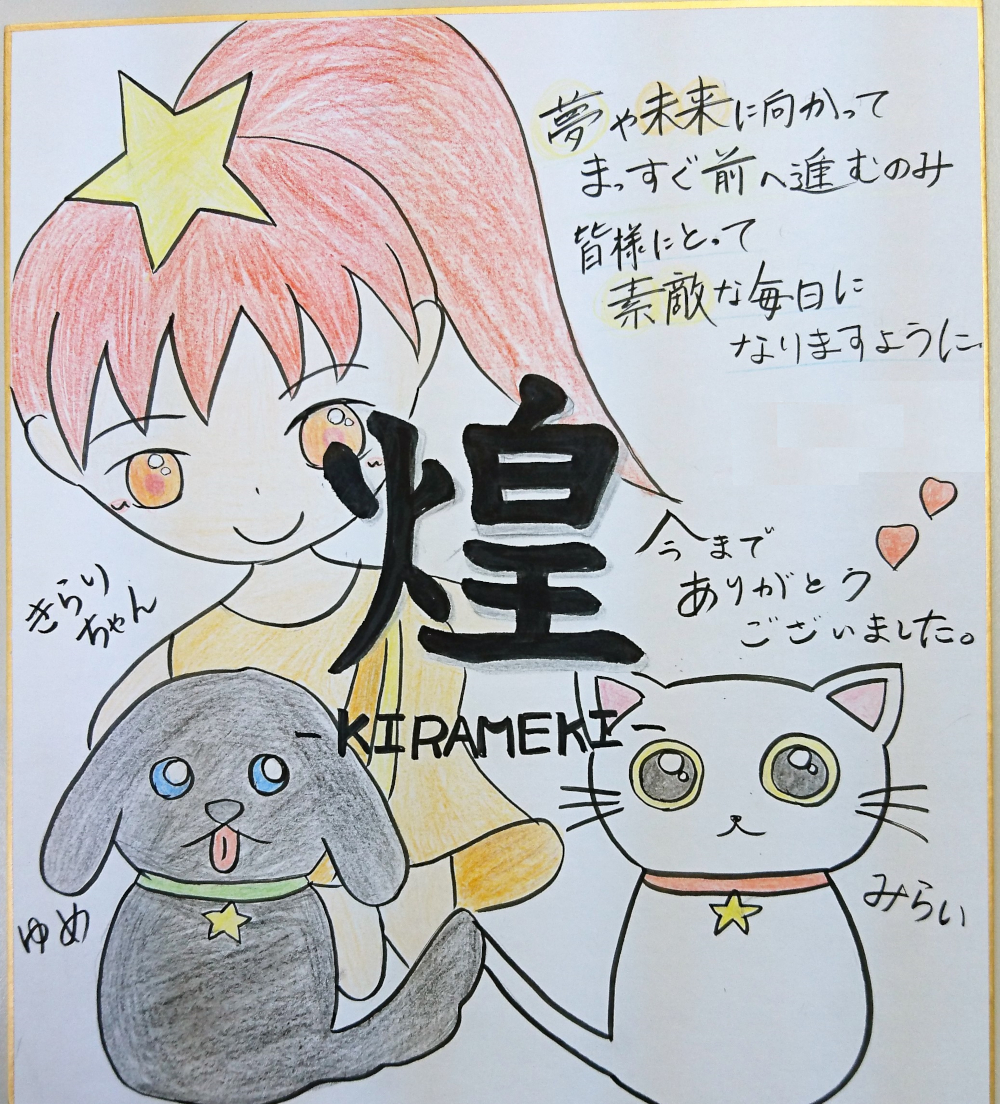 夢や未来に向かって
まっすぐ前へ進むのみ
皆様にとって
素敵な毎日に
なりますように
煌
-KIRAMEKI-
今まで
ありがとう
ございました。
きらり
ちゃん
ゆめ
みらい